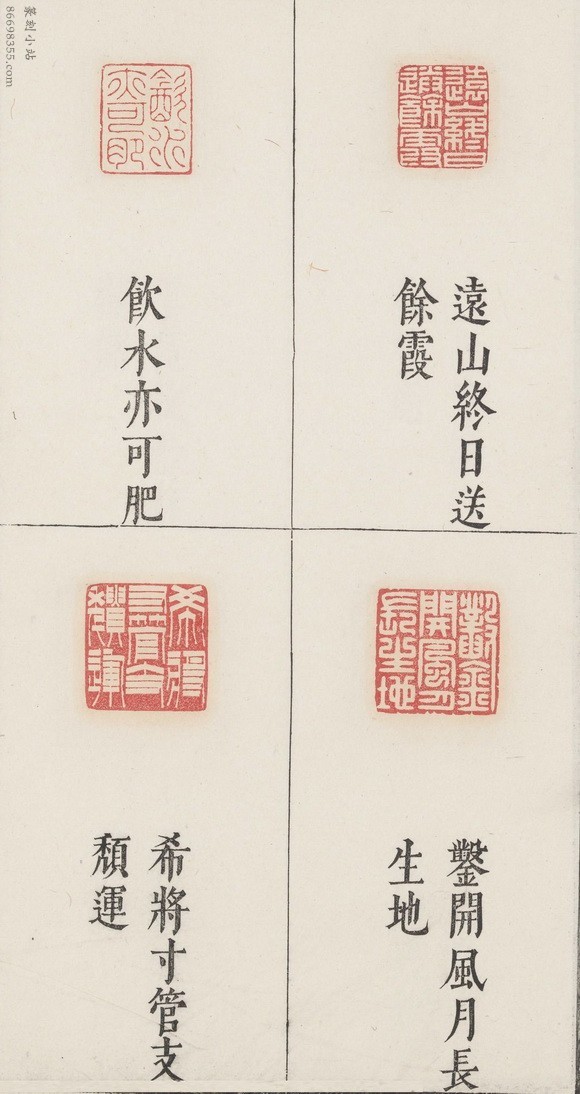 遠山終日送
餘霞
飲水亦可肥
鑿開風月長
生地
希將寸管支
頹運
篆刻小站
86698355.com